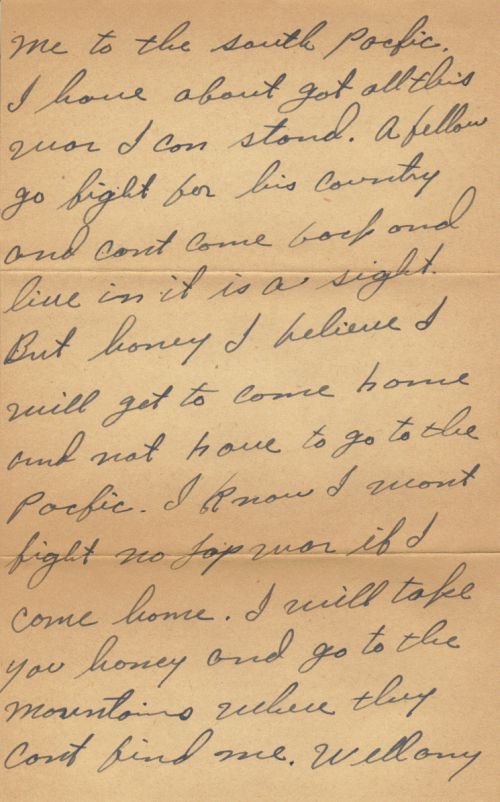 me to the south Pacfic.
I have about got all this
war I can stand. A fellow
go fight for his country
and cant come back and
live in it is a sight.
But honey I believe I
will get to come home
and not have to go to the
Pacfic. I know I wont
fight no Jap war if I
come home. I will take
you honey and go to the
mountains where they
cant find me. Well any